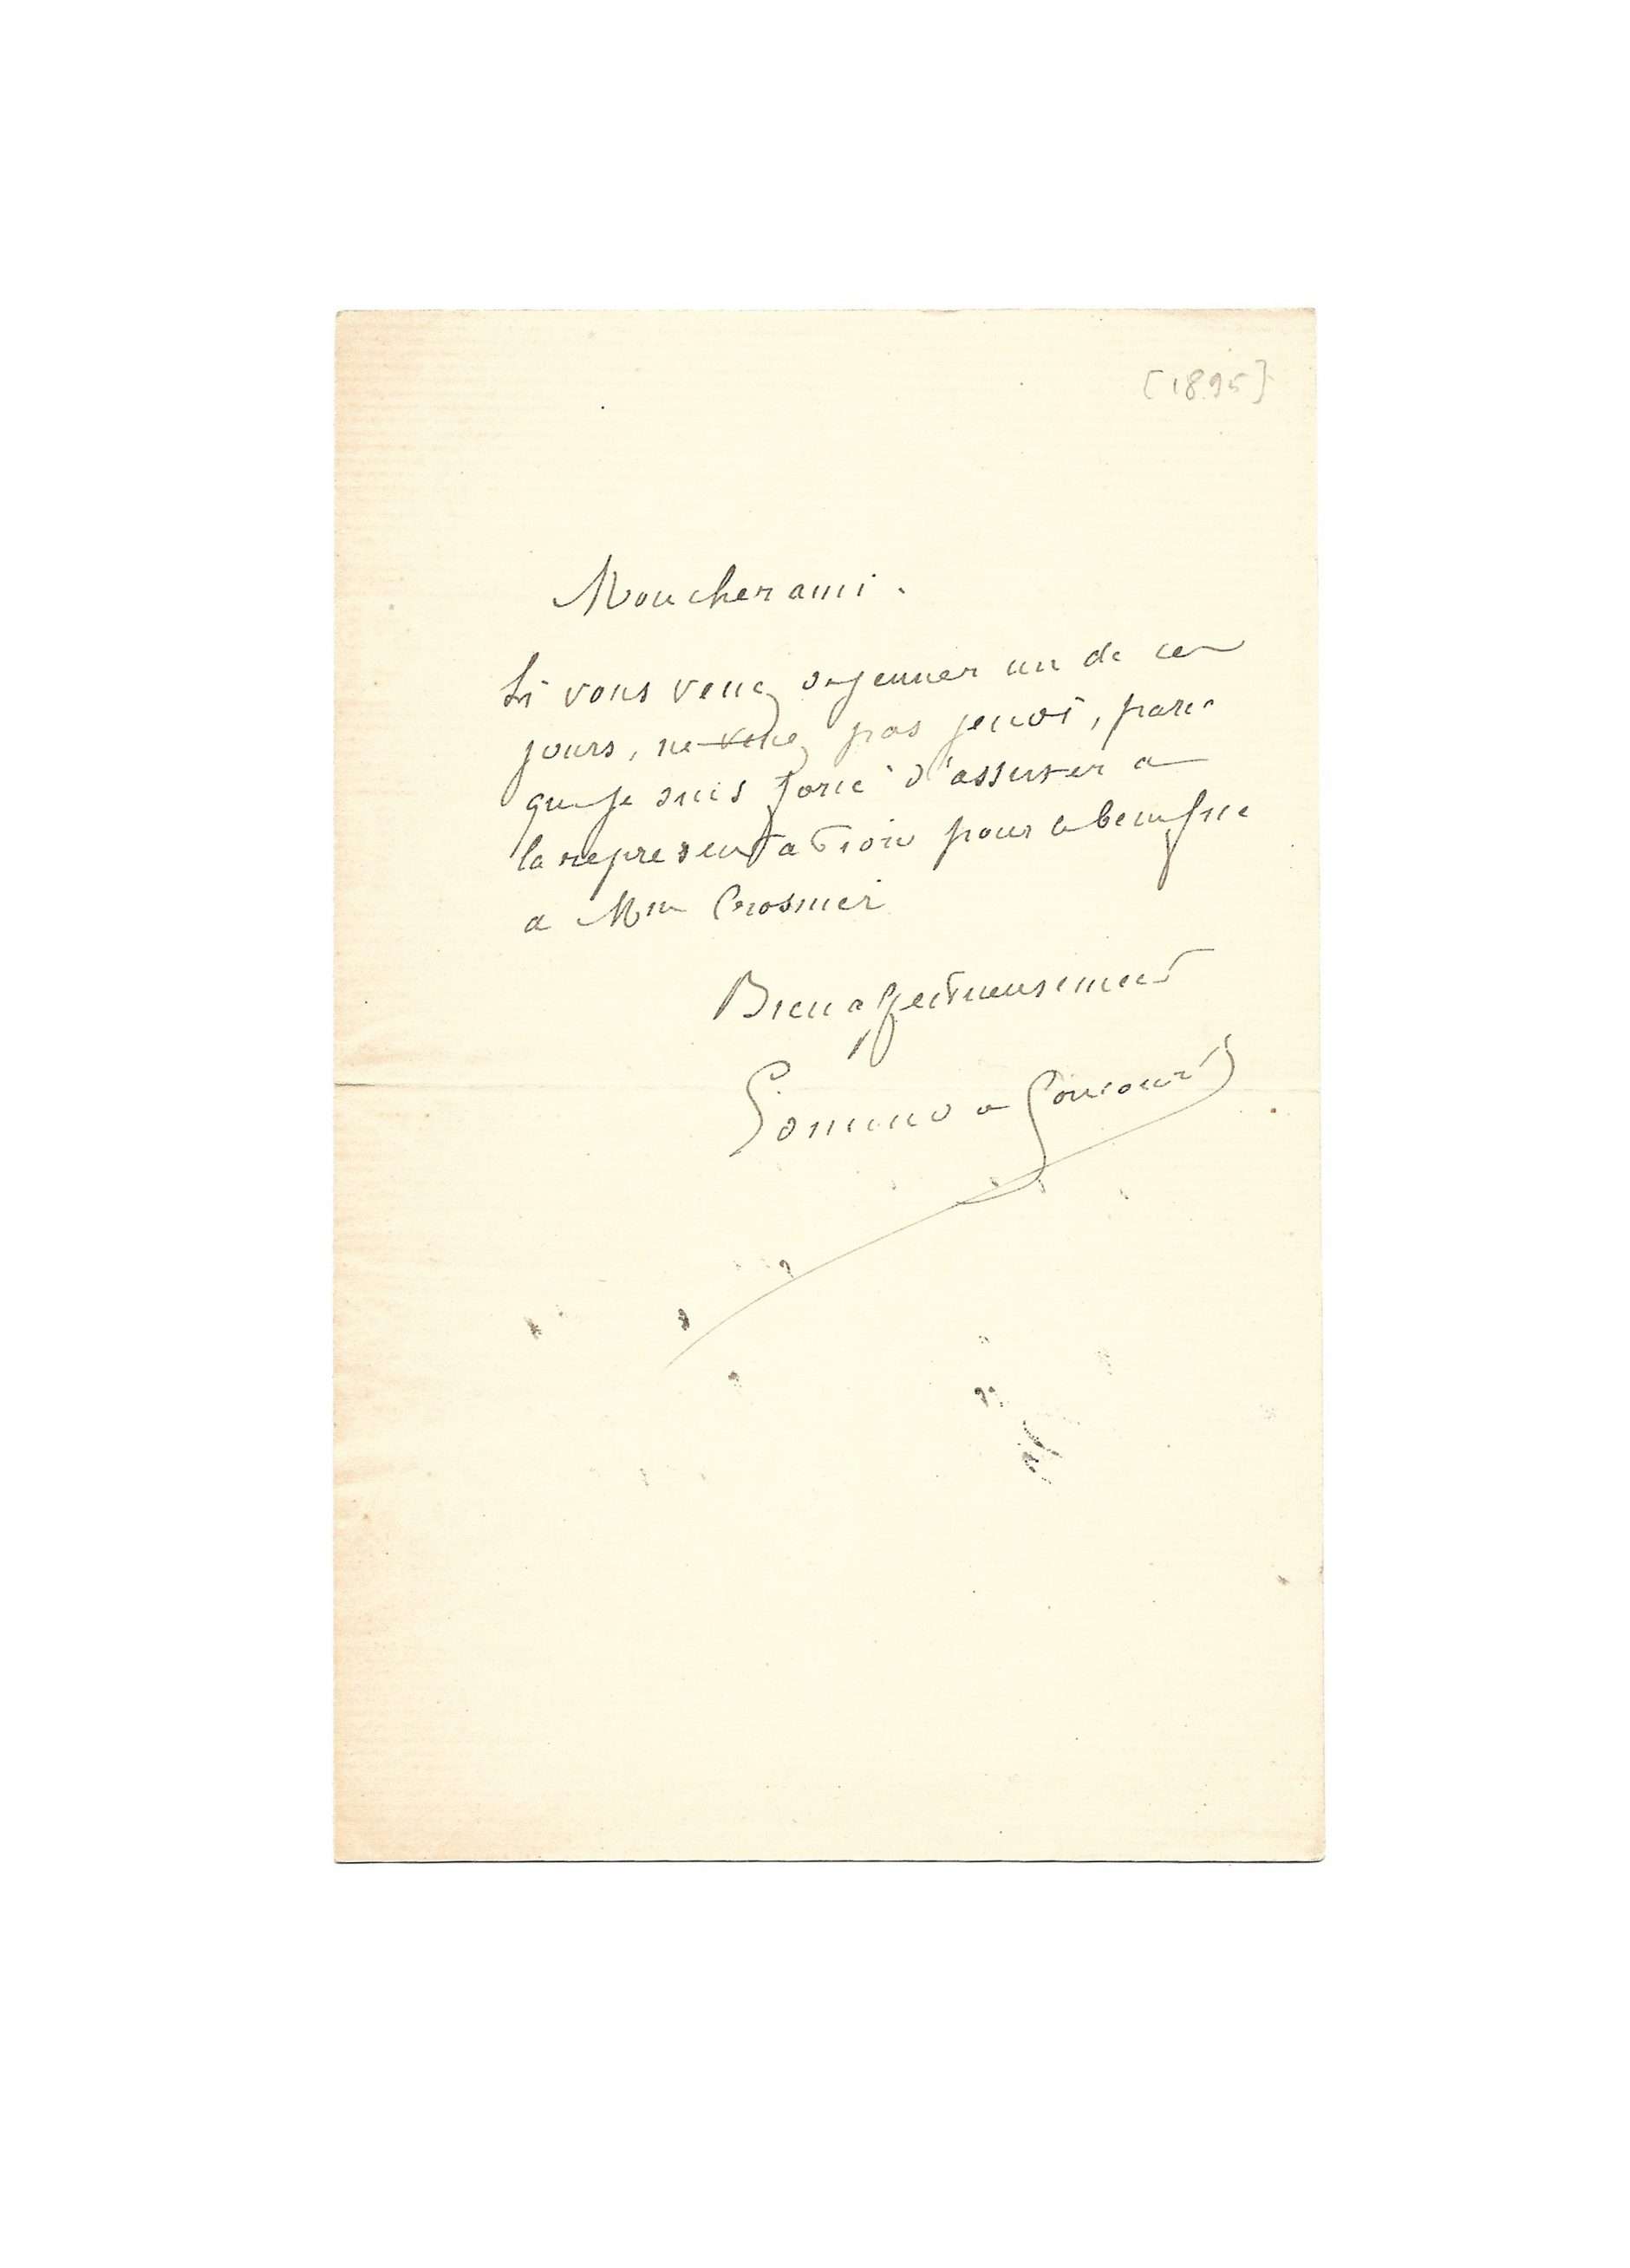 [1895]
Mon cher ami.
Si vous venez dejeuner un de ces
jours, ne venez pas jeudi, parce
que je suis forcé d'assister a
la representation pour le benefice
de Mme Crosnier
Bien affectueusement
Edmond de Goncourt